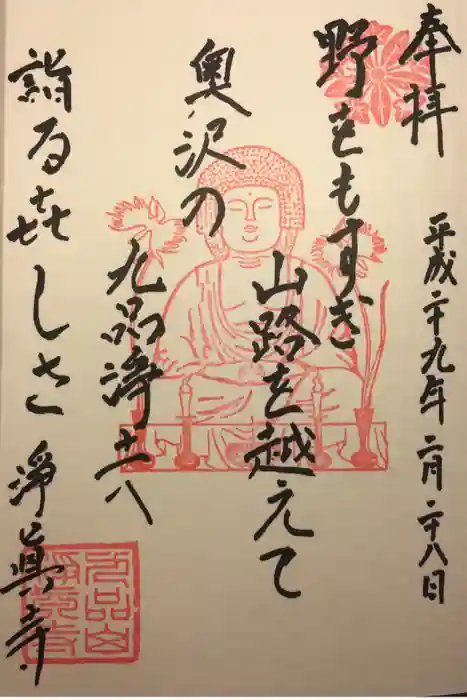 奉拝
平成二十九年二月二十八日
野をもすぎ
山路を越えて
奥沢の
九品淨土へ
詣る㐂しさ
淨眞寺
九品山
淨眞寺